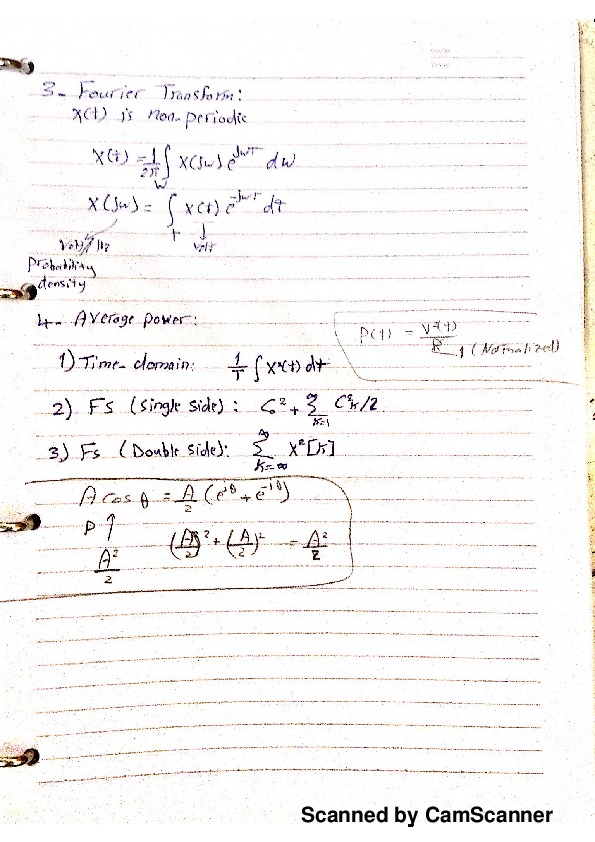 3- Fourier Transform:
X(t) is non-periodic
X(t) = 1/2π ∫w X(jw) e^jwt dw
X(jw) = ∫t X(t) e^-jwt dt
Volt/Hz volt
Probability
density
4- Average power:
P(t) = V²(t)/R 1 (Normalized)
1) Time-domain: 1/T ∫ X²(t) dt
2) FS (single side): C₀² + ∞Σk=1 C²k/2
3) Fs (Double side): ∞Σk=-∞ X²[k]
A cos θ = A/2 (e^jθ + e^-jθ)
P ↑
A²/2 (A/2)² + (A/2)² = A²/2
Scanned by CamScanner